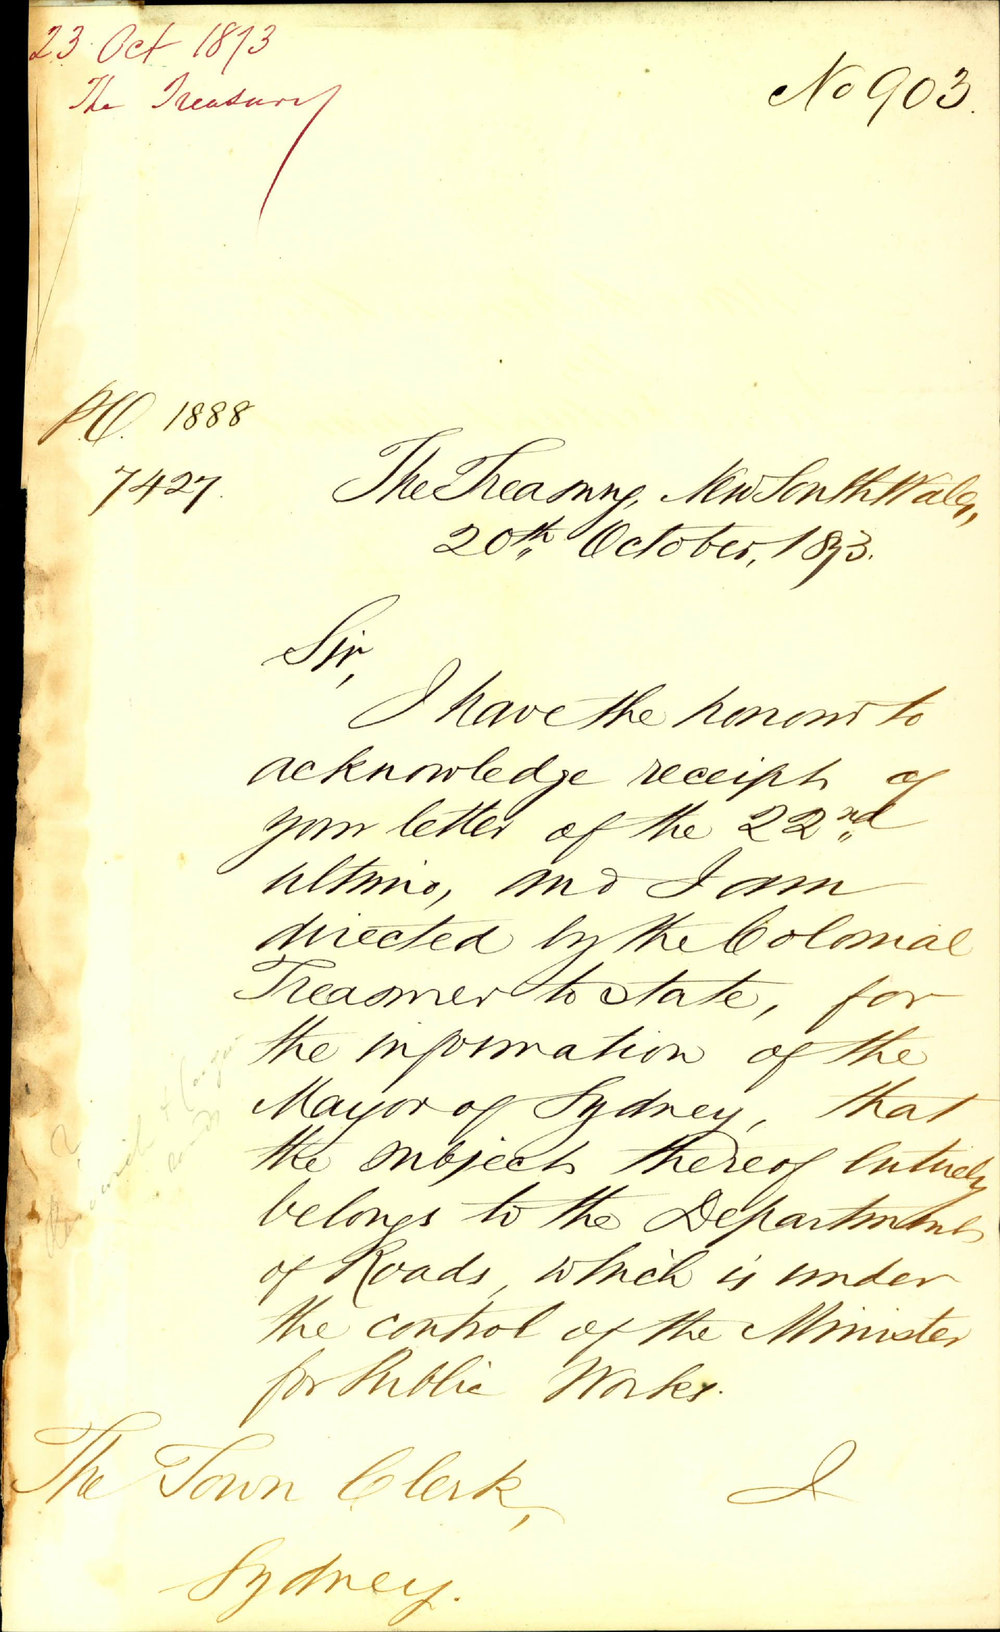 23 Oct 1873
The Treasury
No 903.
1888
7427.
The Treasury, New South Wales,
20th October, 1873.
Sir,
I have the honour to
acknowledge receipt of
your letter of the 22nd
ultimo, and I am
directed by the Colonial
Treasurer to state, for
the information of the
Mayor of Sydney, that
the subject thereof entirely
belongs to the Department
of Roads, which is under
the control of the Minister
for Public Works.
I
The Town Clerk,
Sydney.